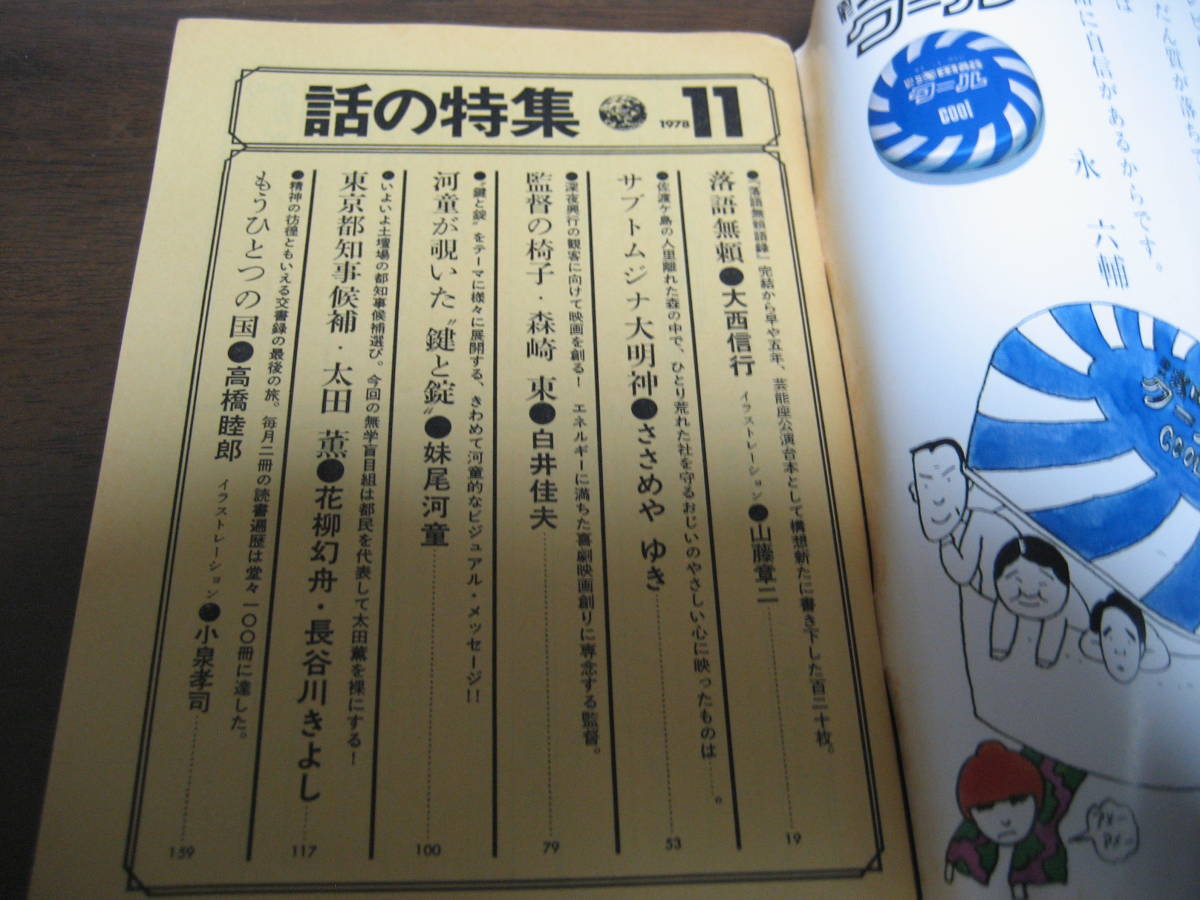 話の特集 1978 11
●『落語無頼語録』完結から早や五年、芸能座公演台本として構想新たに書き下した百二十枚。
落語無頼●大西信行 イラストレーション●山藤章二 19
●佐渡ケ島の人里離れた森の中で、ひとり荒れた社を守るおじいのやさしい心に映ったものは……。
サブトムジナ大明神●ささめや ゆき 53
●深夜興行の観客に向けて映画を創る! エネルギーに満ちた喜劇映画創りに専念する監督。
監督の椅子・森崎 東●白井佳夫 79
●“鍵と錠”をテーマに様々に展開する、きわめて河童的なビジュアル・メッセージ!!
河童が覗いた“鍵と錠”●妹尾河童 100
●いよいよ土壇場の都知事候補選び。今回の無学盲目組は都民を代表して太田薫を裸にする!
東京都知事候補・太田 薫●花柳幻舟・長谷川きよし 117
●精神の彷徨ともいえる交書録の最後の旅。毎月二冊の読書遍歴は堂々一〇〇冊に達した。
もうひとつの国●高橋睦郎 イラストレーション●小泉孝司 159
クール
クール
COOL
だん質が落ち
は
に自信があるからです。
永 六輔
クール
COOL
アメー
アメー